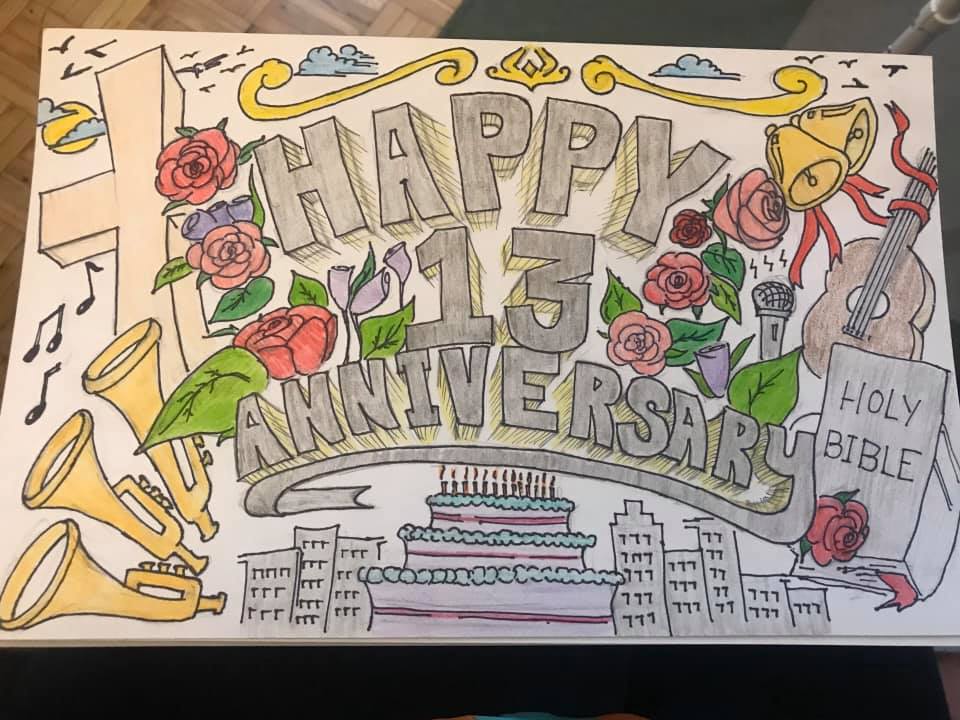 HAPPY
13
ANNIVERSARY
HOLY
BIBLE